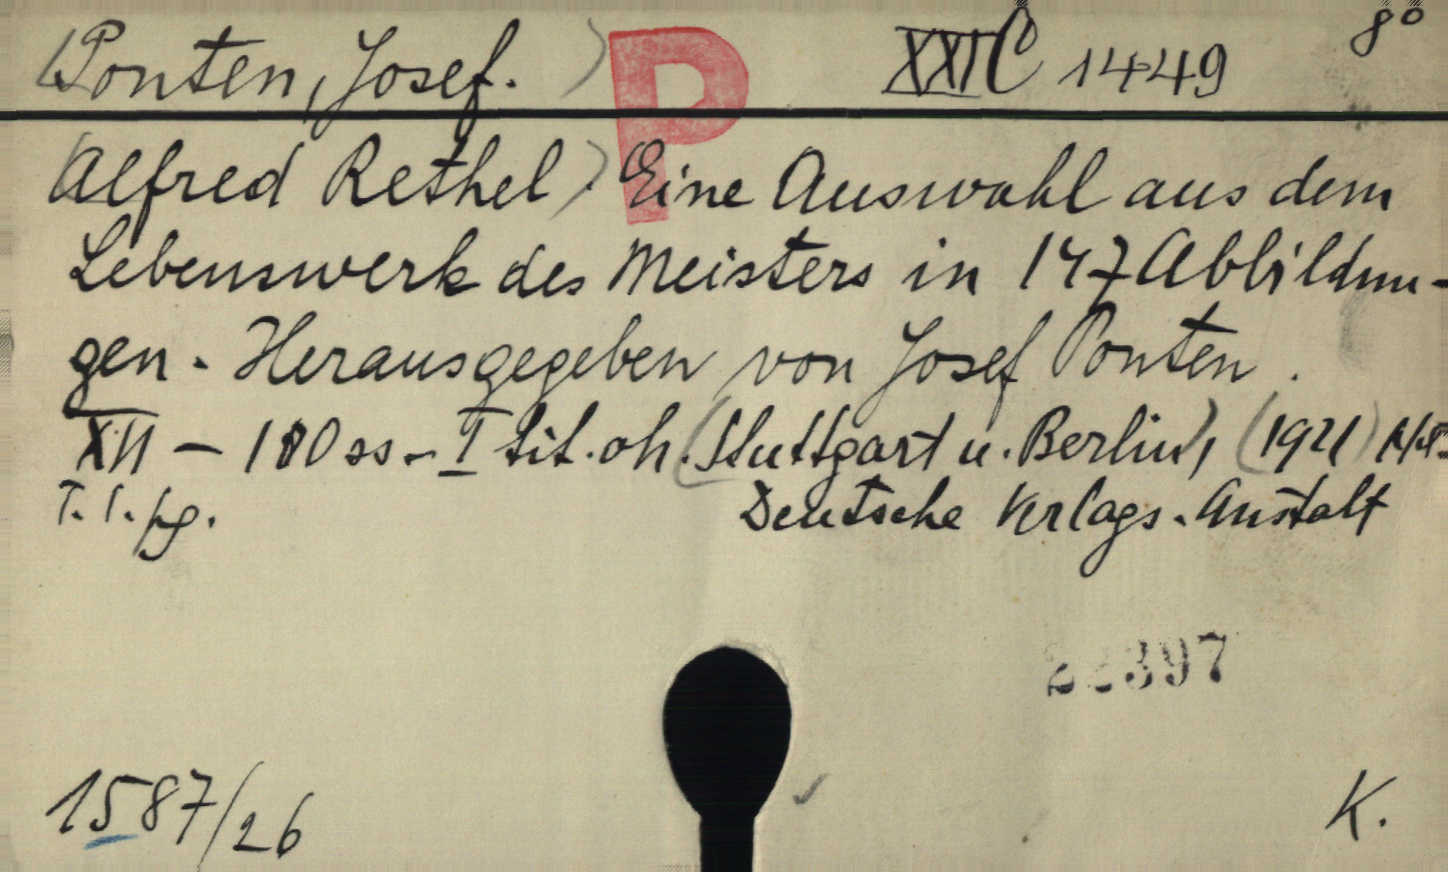 (Ponten, Josef.) P XXI C 1449 8°
(Alfred Rethel). Eine Auswahl aus dem
Lebenswerk des Meisters in 147 Abbildun-
gen. Herausgegeben von Josef Ponten.
XII - 180 ss. - I tit. oh. (Stuttgart u. Berlin), (1921)
T. I. fg. Deutsche Verlags-Anstalt
22397
1587/26 K.